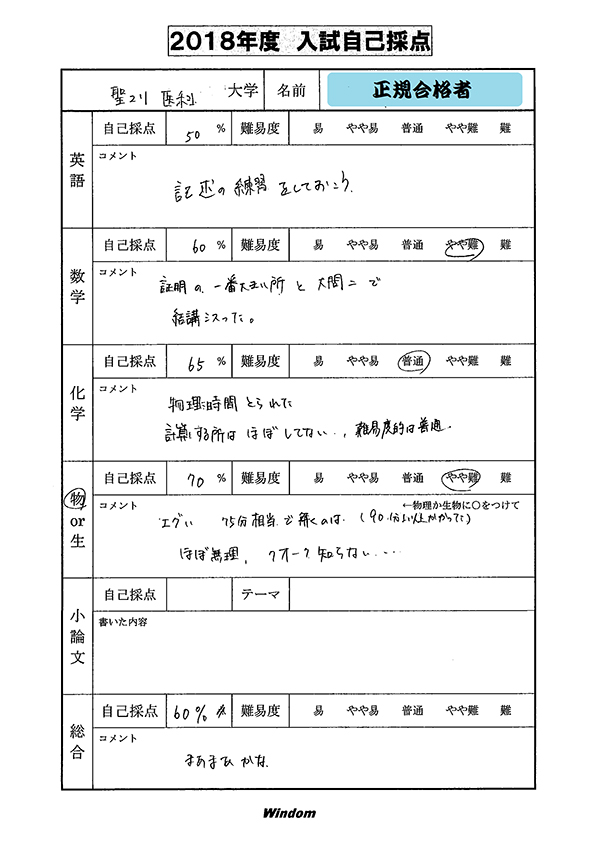 2018年度 入試自己採点
聖マリ 医科 大学 名前 正規合格者
英語
自己採点 50 % 難易度 易 やや易 普通 やや難 難
コメント
記述の練習をしておこう.
数学
自己採点 60 % 難易度 易 やや易 普通 やや難 難
コメント
証明の、一番大きい所と大問二で
結講ミスった。
化学
自己採点 65 % 難易度 易 やや易 普通 やや難 難
コメント
物理に時間とられた
計算する所はほぼしてない…, 難易度的は普通.
物or生
自己採点 70 % 難易度 易 やや易 普通 やや難 難
コメント ←物理か生物に○をつけて
エグい 75分相当で解くのは. (90分以上かかってた)
ほぼ無理, クオーク知らない....
小論文
自己採点 テーマ
書いた内容
総合
自己採点 60% 難易度 易 やや易 普通 やや難 難
コメント
まあまあかな.
Windom